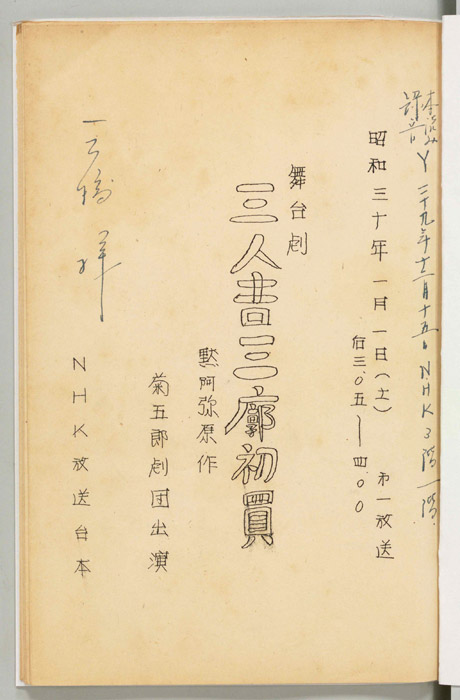 本読み
録音 Y 二十九年十二月十五日 NHK 3階 一階
昭和三十年一月一日(土) 第一放送
后三.〇五―四.〇〇
舞台劇
三人吉三廓初買
黙阿弥原作
菊五郎劇団出演
NHK放送台本